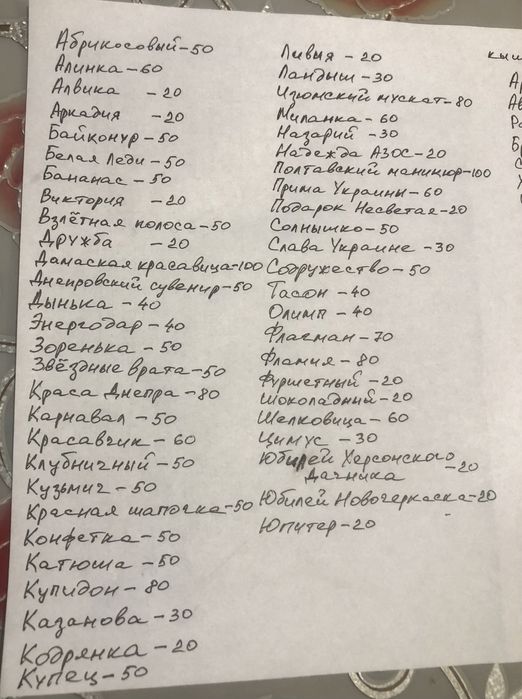 Абрикосовый-50
Алинка-60
Алвика -20
Аркадия -20
Байконур-50
Белая Леди-50
Бананас -50
Виктория -20
Взлётная полоса-50
Дружба -20
Дамаская красавица-100
Днепровский сувенир-50
Дынька-40
Энергодар-40
Зоренька-50
Звёздные врата-50
Краса Днепра-80
Карнавал-50
Красавчик-60
Клубничный-50
Кузьмич-50
Красная шапочка-50
Конфетка-50
Катюша-50
Купидон-80
Казанова-30
Кодрянка-20
Купец-50
Ливия - 20
Ландыш-30
Изюмский мускат-80
Миланка-60
Назарий -30
Надежда АЗОС-20
Полтавский маникюр-100
Прима Украины-60
Подарок Несветая-20
Солнышко-50
Слава Украине-30
Содружество-50
Тасон-40
Олимп-40
Флагман-70
Фламия-80
Фуршетный-20
Шоколадный-20
Шелковица-60
Цимус -30
Юбилей Херсонского
Дачника -20
Юбилей Новочеркаска-20
Юпитер-20